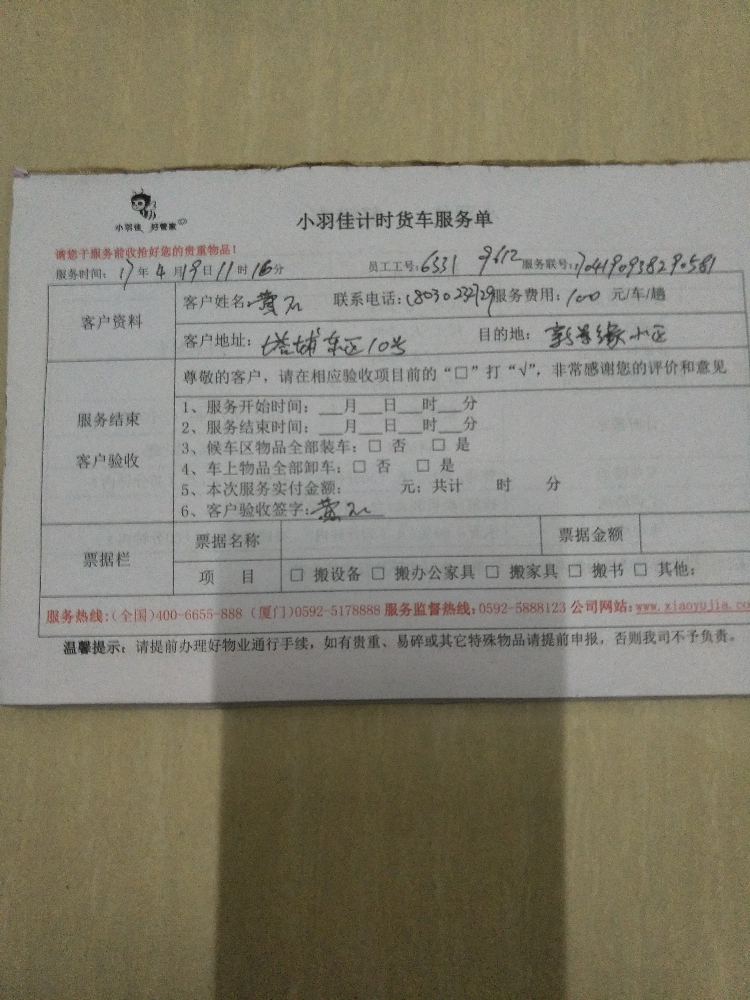 小羽佳 好管家
小羽佳计时货车服务单
请您于服务前收拾好您的贵重物品！
服务时间：17年4月19日11时16分 员工工号：6331 9612 服务联号：
客户资料
客户姓名：黄 联系电话： 服务费用：100 元/车/趟
客户地址：塔埔东区10号 目的地：新景缘小区
尊敬的客户，请在相应验收项目前的“□”打“√”，非常感谢您的评价和意见
服务结束
客户验收
1、服务开始时间：___月___日___时___分
2、服务结束时间：___月___日___时___分
3、候车区物品全部装车：□ 否 □ 是
4、车上物品全部卸车：□ 否 □ 是
5、本次服务实付金额： 元；共计 时 分
6、客户验收签字：黄
票据栏
票据名称 票据金额
项 目 □ 搬设备 □ 搬办公家具 □ 搬家具 □ 搬书 □ 其他：
服务热线：(全国)400-6655-888 (厦门)0592-5178888 服务监督热线：0592-5888123 公司网站：www.xiaoyujia.co
温馨提示：请提前办理好物业通行手续，如有贵重、易碎或其它特殊物品请提前申报，否则我司不予负责。